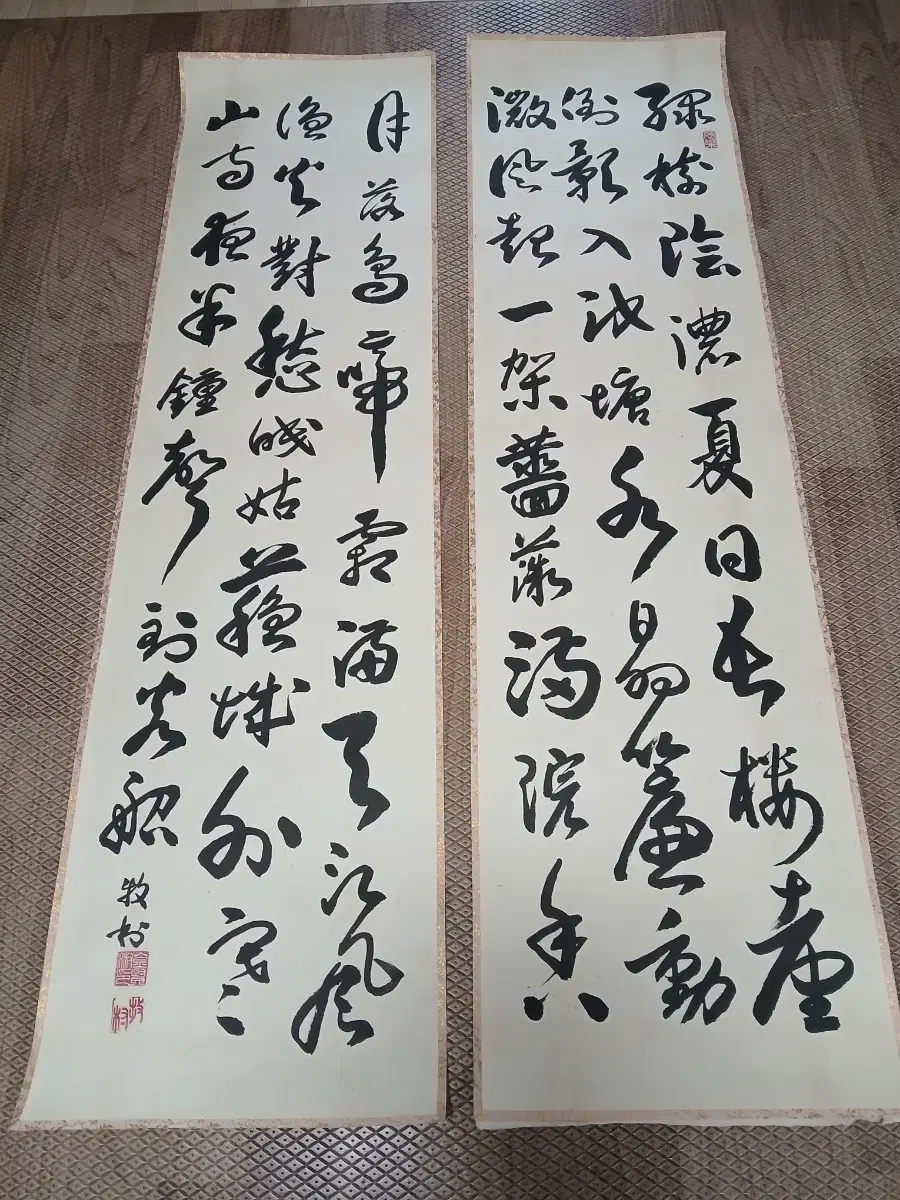 綠樹陰濃夏日長樓臺
倒影入池塘水晶簾動
微風起一架薔薇滿院香
月落烏啼霜滿天江楓
漁火對愁眠姑蘇城外寒
山寺夜半鐘聲到客船
牧村
牧村